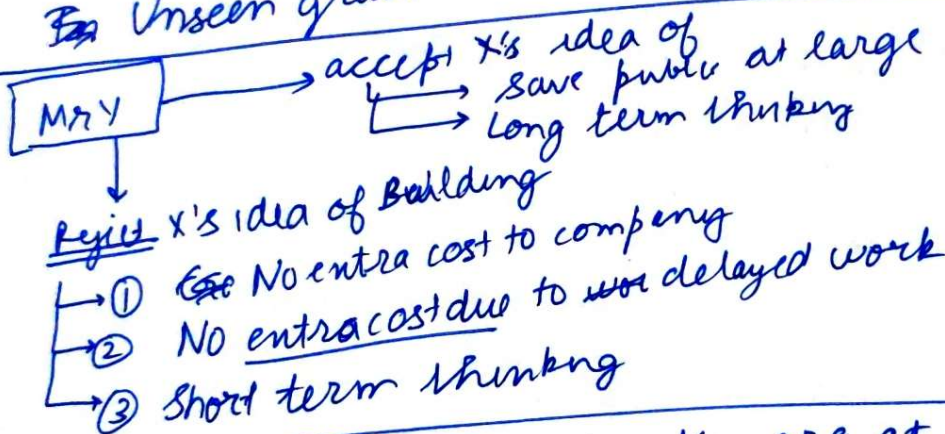 Unseen
Mr Y
accept X's idea of
save public at large
Long term thinking
Reject X's idea of Building
① No extra cost to company
② No extra cost due to delayed work
③ Short term thinking